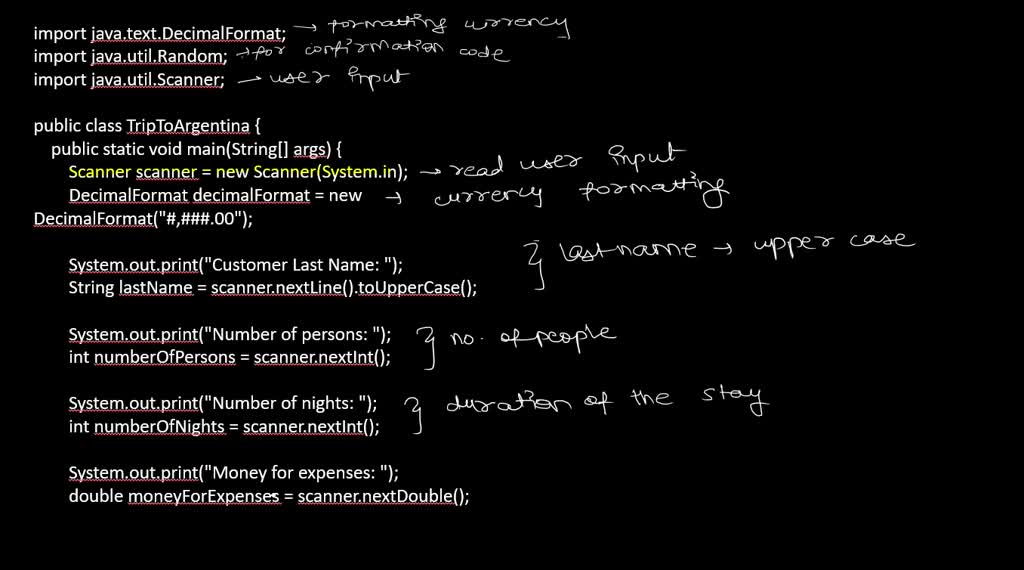 import java.text.DecimalFormat; → formatting currency
import java.util.Random; → for confirmation code
import java.util.Scanner; → user input
public class TripToArgentina {
public static void main(String[] args) {
Scanner scanner = new Scanner(System.in); → read user input
DecimalFormat decimalFormat = new → currency formatting
DecimalFormat("#,###.00");
System.out.print("Customer Last Name: "); } last name → upper case
String lastName = scanner.nextLine().toUpperCase();
System.out.print("Number of persons: "); } no. of people
int numberOfPersons = scanner.nextInt();
System.out.print("Number of nights: "); } duration of the stay
int numberOfNights = scanner.nextInt();
System.out.print("Money for expenses: ");
double moneyForExpenses = scanner.nextDouble();